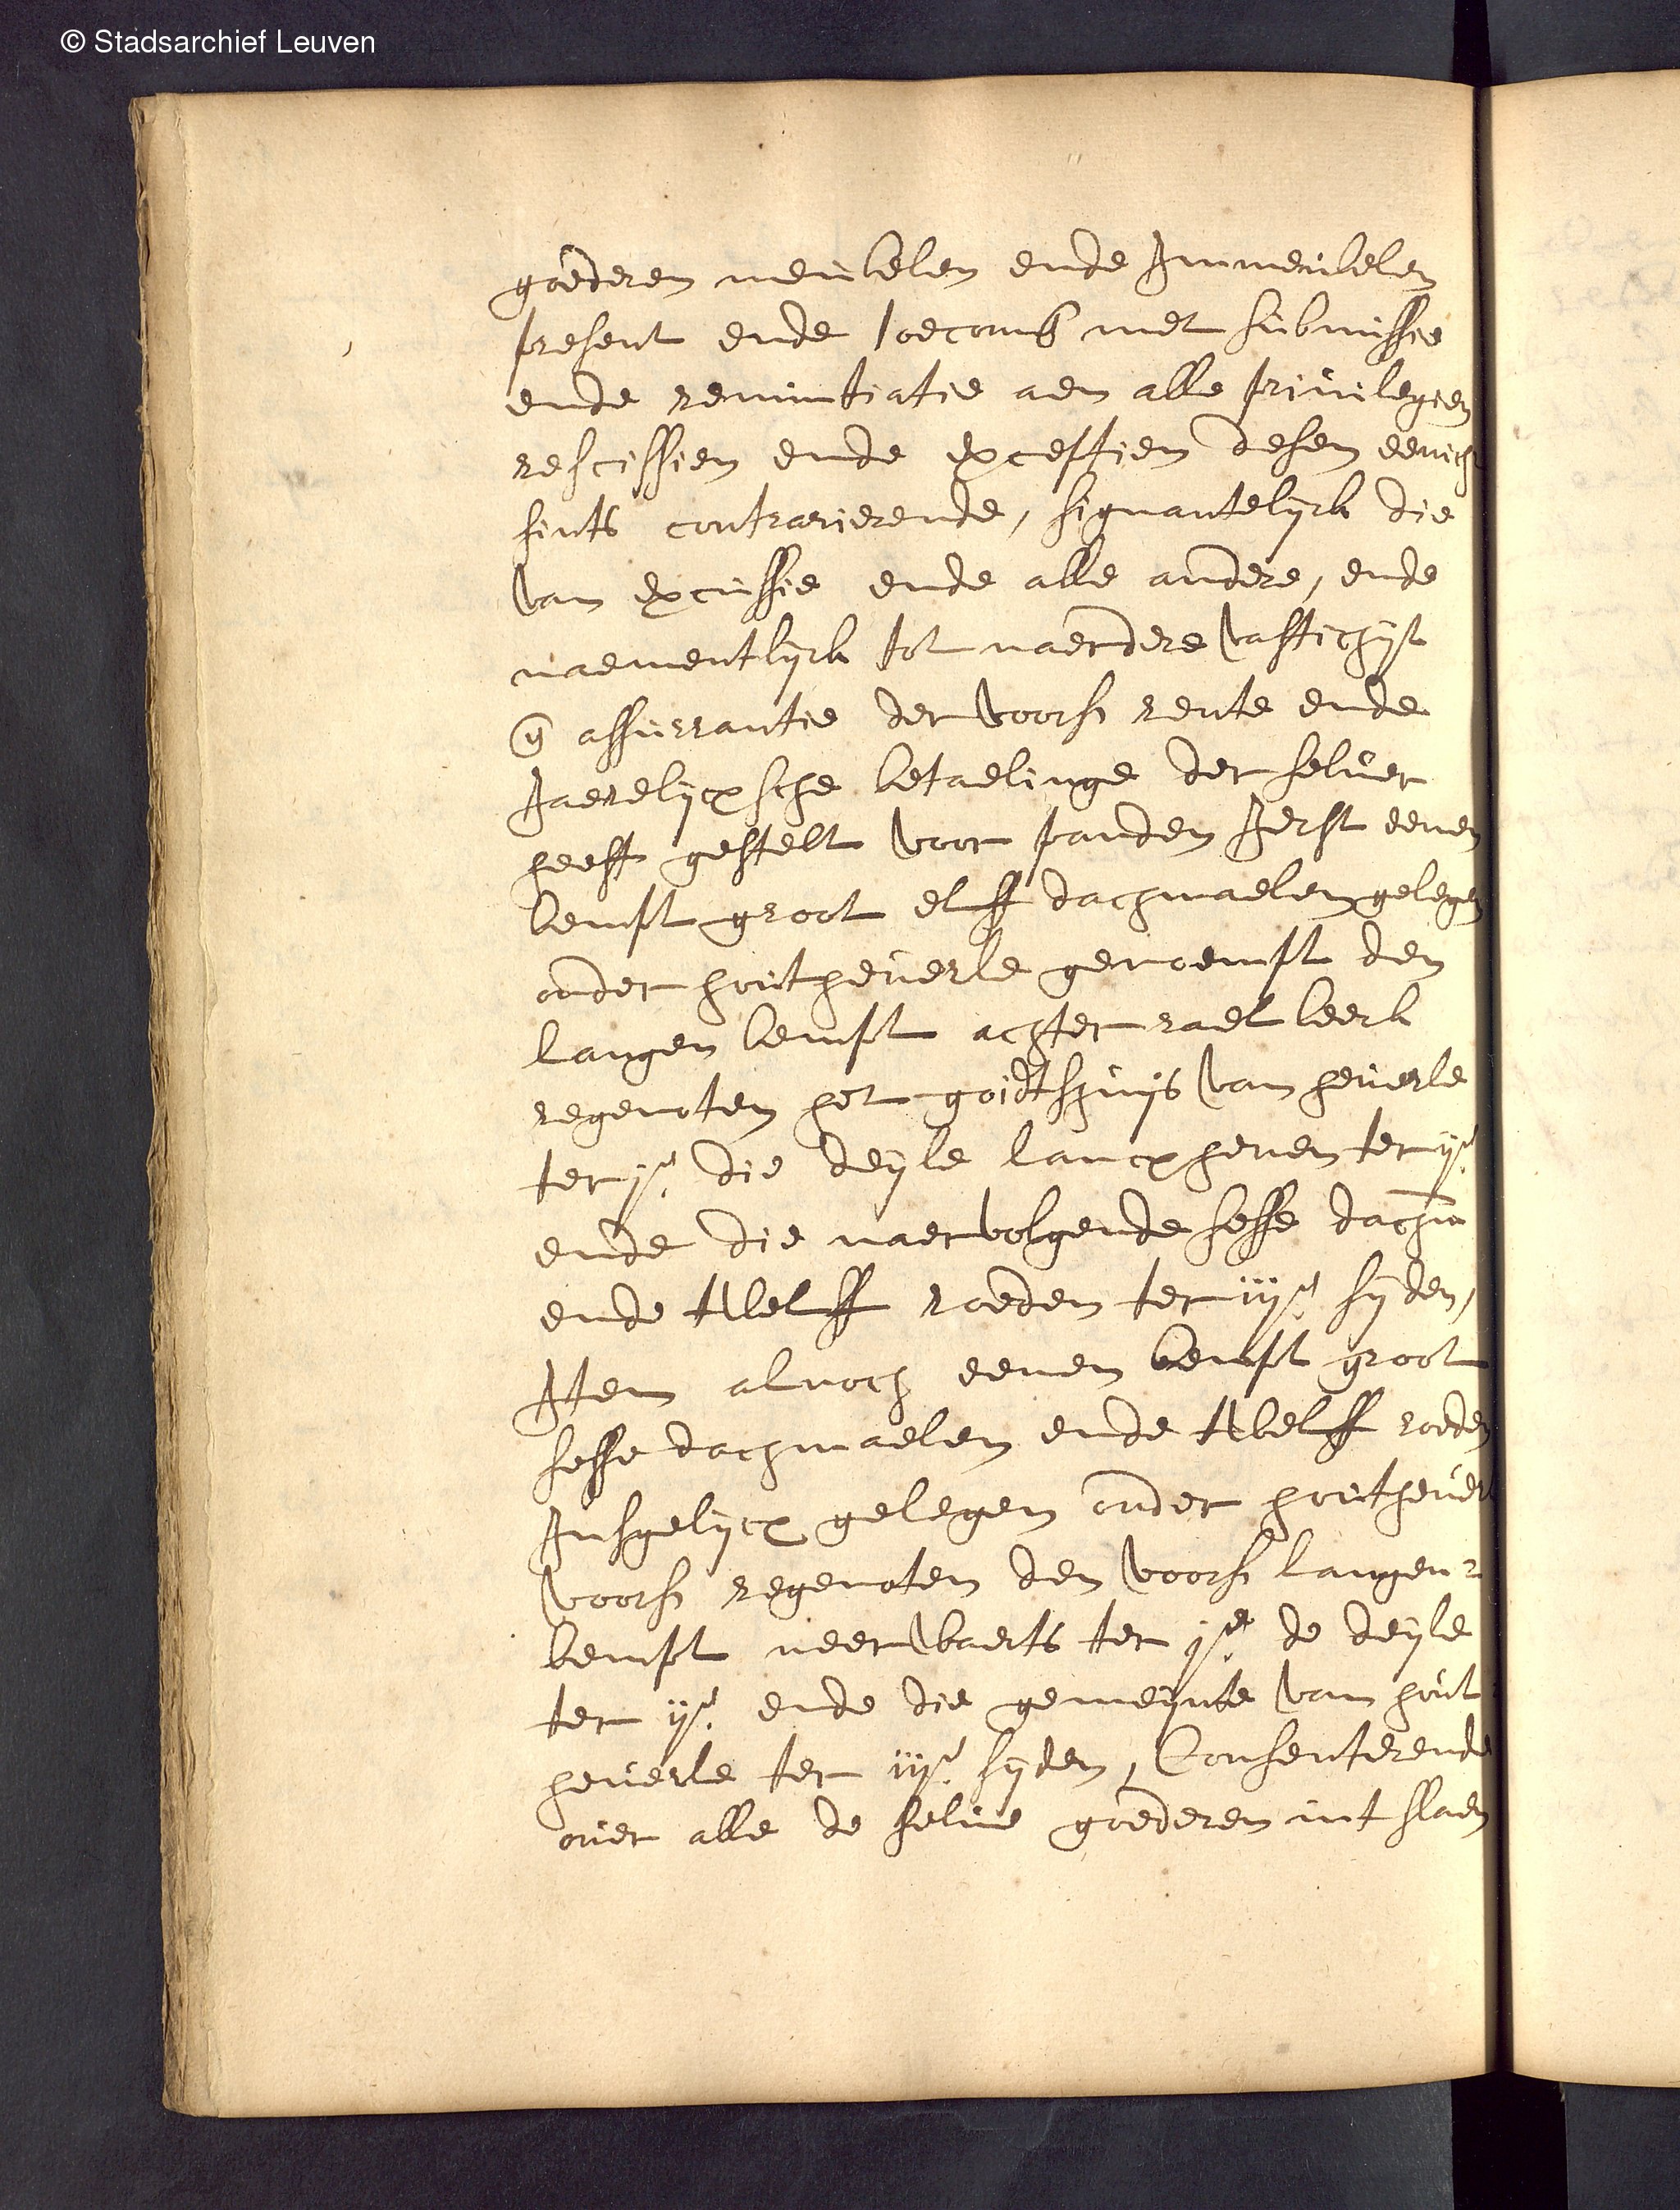 © Stadsarchief Leuven
goederen meubelen ende Immeubelen
present ende toecom~ met submissie
ende renuntiatie aen alle privilegien
rescissien ende exceptien desen eenich
sints contrarierende, signantelyck die
van excussie ende alle andere, ende
naementlyck tot naerdere vasticheyt
en~ assurrantie der voors~ rente ende
Jaerelycxsche betaelinge der selver
heeft gestelt voor panden Ierst eenen
bempt groot elff dachmaelen gelegen
onder houtheverle genoempt den
langen bempt achter raelbeeck
regenoten het goidtshuys van heverle
ter j.e die deyle lancxhenen ter ij.e
ende die naervolgende sesse dachm~
ende twelff roeden ter iij.e syden,
Item alnoch eenen bempt groot
sesse dachmaelen ende twelff roeden
Insgelycx gelegen onder houtheverl
voors~ regenoten den voors~ langen
bempt neerwaerts ter j.e de deyle
ter ij.e ende die gemeynte van hout
heverle ter iij.e syden, Consenterende
over alle de selve goederen int slaen